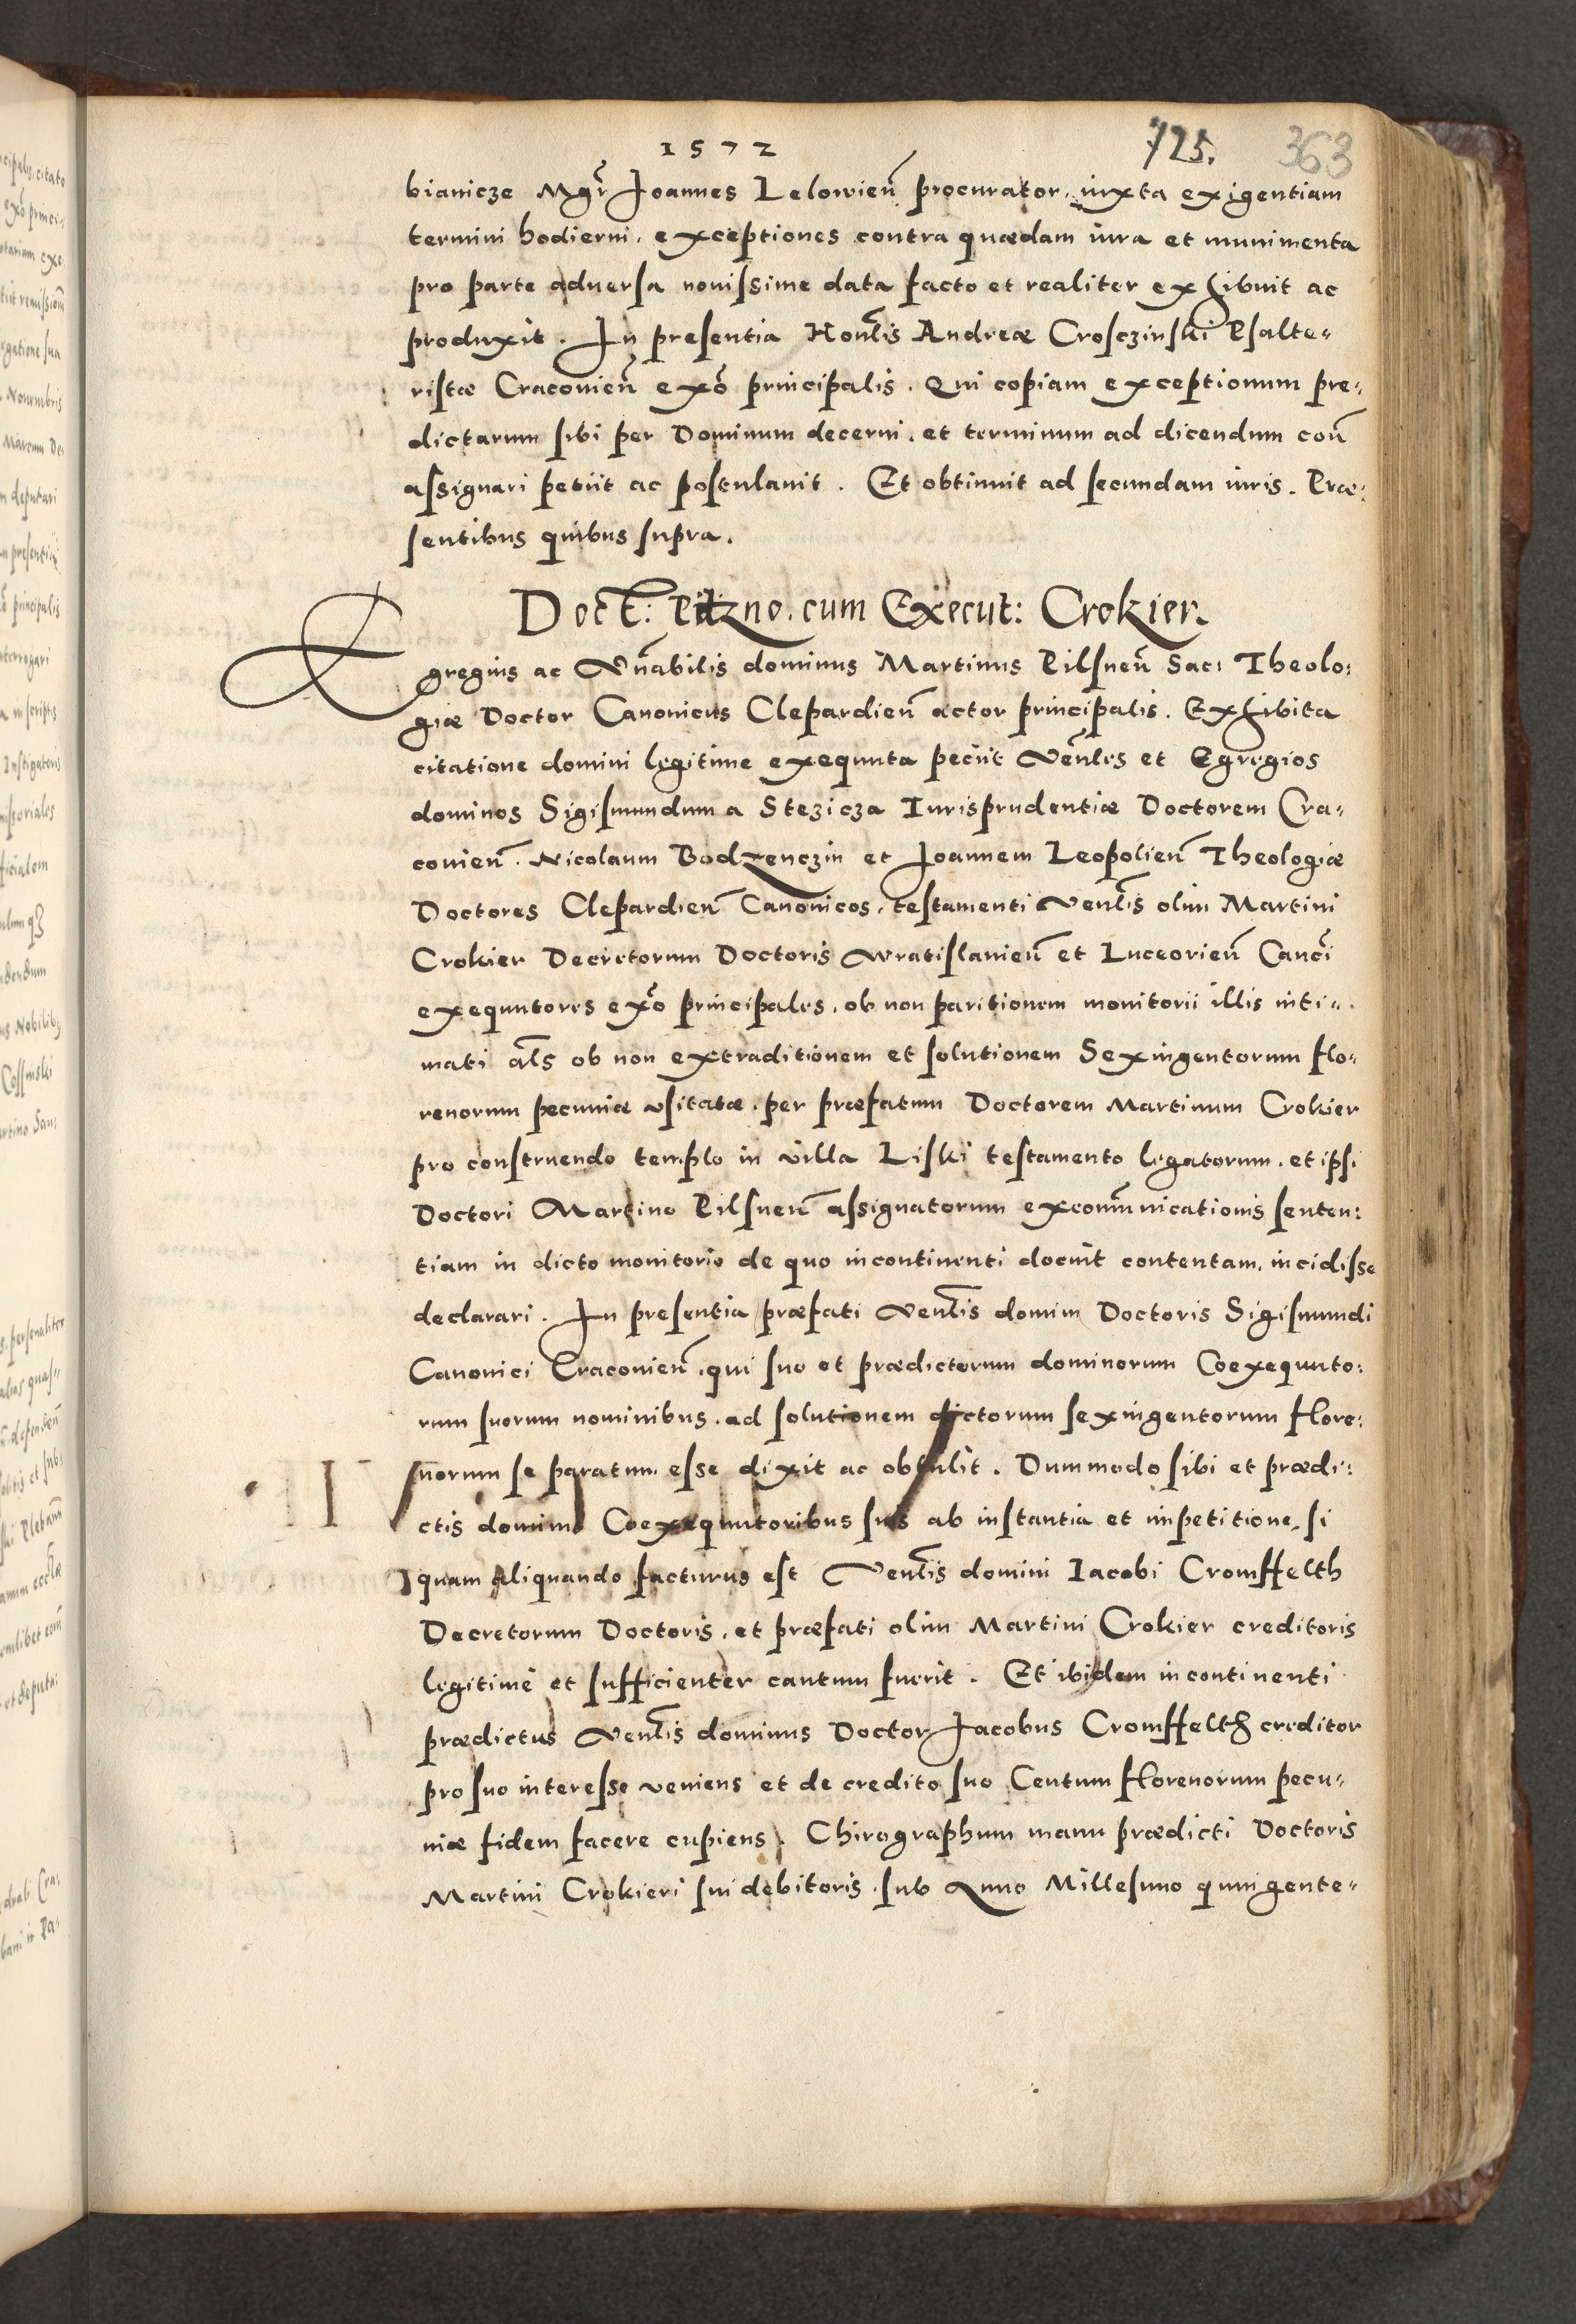 1572 725. 363
bianicze Mgr̃ Joannes Lelowien̄ procurator, iuxta exigentiam
termini hodierni, exceptiones contra quædam iura et munimenta
pro parte aduersa nouissime data facto et realiter exhibuit ac
produxit. In presentia Hon̄lis Andreæ Crosczinski Psalte-
ristæ Cracouien̄ exõ principalis. Qui copiam exceptionum pre-
dictarum sibi per Dominum decerni, et terminum ad dicendum con̄
assignari petiit ac postulauit. Et obtinuit ad secundam iuris. Præ:
sentibus quibus supra.
Doct: Pilzno. cum Execut: Crokier.
Egregius ac Vn̄abilis dominus Martinus Pilsnen̄ Sac: Theolo:
giæ Doctor Canonicus Clepardien̄ actor principalis. Exhibita
citatione domini legitime exequuta peciit Ven̄les et Egregios
dominos Sigismundum a Stezicza Iurisprudentiæ Doctorem Cra-
couien̄. Nicolaum Bodzenczin et Joannem Leopolien̄ Theologiæ
Doctores Clepardien̄ Canonicos, testamenti Ven̄lis olim Martini
Crokier Decretorum Doctoris Wratislauien̄ et Luceorien̄ Canc̄i
exequutores exõ principales, ob non paritionem monitorii illis inti-
mati al̄s ob non extraditionem et solutionem Sexingentorum flo-
renorum pecuniæ vsitatæ, per præfatum Doctorem Martinum Crokier
pro construendo templo in villa Liski testamento legatorum, et ipsi
Doctori Martino Pilsnen̄ assignatorum excom̄unicationis senten:
tiam in dicto monitorio de quo incontinenti docuit contentam, incidisse
declarari. In presentia præfati Ven̄lis domini Doctoris Sigismundi
Canonici Cracouien̄, qui suo et prædictorum dominorum Coexequuto:
rum suorum nominibus, ad solutionem dictorum sexingentorum flore:
norum se paratum esse dixit ac obtulit. Dummodo sibi et prædi:
ctis dominis Coexequutoribus suis ab instantia et impetitione, si
quam aliquando facturus est Ven̄lis domini Iacobi Cromffelth
Decretorum Doctoris, et præfati olim Martini Crokier creditoris
legitime et sufficienter cautum fuerit. Et ibidem incontinenti
prædictus Ven̄lis dominus Doctor Jacobus Cromffelth creditor
pro suo interesse veniens et de credito suo Centum florenorum pecu-
niæ fidem facere cupiens, Chirographum manu prædicti Doctoris
Martini Crokieri sui debitoris, sub Anno Millesimo quingente-